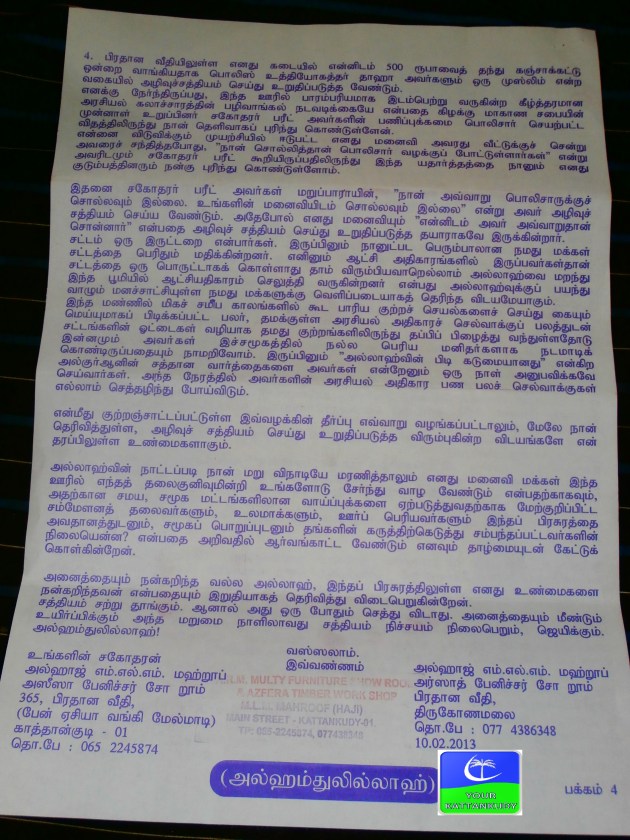 4. பிரதான வீதியிலுள்ள எனது கடையில் என்னிடம் 500 ரூபாவைத் தந்து கஞ்சாக்கட்டு
ஒன்றை வாங்கியதாக பொலிஸ் உத்தியோகத்தர் தாஹா அவர்களும் ஒரு முஸ்லிம் என்ற
வகையில் அழிவுச்சத்தியம் செய்து உறுதிப்படுத்த வேண்டும்.
எனக்கு நேர்ந்திருப்பது, இந்த ஊரில் பாரம்பரியமாக இடம்பெற்று வருகின்ற கீழ்த்தரமான
அரசியல் கலாச்சாரத்தின் பழிவாங்கல் நடவடிக்கையே என்பதை கிழக்கு மாகாண சபையின்
முன்னாள் உறுப்பினர் சகோதரர் பரீட் அவர்களின் பணிப்புக்கமை பொலிசார் செயற்பட்ட
விதத்திலிருந்து நான் தெளிவாகப் புரிந்து கொண்டுள்ளேன்.
என்னை விடுவிக்கும் முயற்சியில் ஈடுபட்ட எனது மனைவி அவரது வீட்டுக்குச் சென்று
அவரைச் சந்தித்தபோது, "நான் சொல்லித்தான் பொலிசார் வழக்குப் போட்டுள்ளார்கள்" என்று
அவரிடமும் சகோதரர் பரீட் கூறியிருப்பதிலிருந்து இந்த யதார்த்தத்தை நானும் எனது
குடும்பத்தினரும் நன்கு புரிந்து கொண்டுள்ளோம்.
இதனை சகோதரர் பரீட் அவர்கள் மறுப்பாராயின், "நான் அவ்வாறு பொலிசாருக்குச்
சொல்லவும் இல்லை. உங்களின் மனைவியிடம் சொல்லவும் இல்லை" என்று அவர் அழிவுச்
சத்தியம் செய்ய வேண்டும். அதேபோல் எனது மனைவியும் "என்னிடம் அவர் அவ்வாறுதான்
சொன்னார்" என்பதை அழிவுச் சத்தியம் செய்து உறுதிப்படுத்த தயாராகவே இருக்கின்றார்.
சட்டம் ஒரு இருட்டறை என்பார்கள். இருப்பினும் நானுட்பட பெரும்பாலான நமது மக்கள்
சட்டத்தை பெரிதும் மதிக்கின்றனர். எனினும் ஆட்சி அதிகாரங்களில் இருப்பவர்கள்தான்
சட்டத்தை ஒரு பொருட்டாகக் கொள்ளாது தாம் விரும்பியவாறெல்லாம் அல்லாஹ்வை மறந்து
இந்த பூமியில் ஆட்சியதிகாரம் செலுத்தி வருகின்றனர் என்பது அல்லாஹ்வுக்குப் பயந்து
வாழும் மனச்சாட்சியுள்ள நமது மக்களுக்கு வெளிப்படையாகத் தெரிந்த விடயமேயாகும்.
இந்த மண்ணில் மிகச் சமீப காலங்களில் கூட பாரிய குற்றச் செயல்களைச் செய்து கையும்
மெய்யுமாகப் பிடிக்கப்பட்ட பலர், தமக்குள்ள அரசியல் அதிகாரச் செல்வாக்குப் பலத்துடன்
சட்டங்களின் ஓட்டைகள் வழியாக தமது குற்றங்களிலிருந்து தப்பிப் பிழைத்து வந்துள்ளதோடு
இன்னமும் அவர்கள் இச்சமூகத்தில் நல்ல பெரிய மனிதர்களாக நடமாடிக்
கொண்டிருப்பதையும் நாமறிவோம். இருப்பினும் "அல்லாஹ்வின் பிடி கடுமையானது" என்கிற
அல்குர்ஆனின் சத்தான வார்த்தைகளை அவர்கள் என்றேனும் ஒரு நாள் அனுபவிக்கவே
செய்வார்கள். அந்த நேரத்தில் அவர்களின் அரசியல் அதிகார பண பலச் செல்வாக்குகள்
எல்லாம் செத்தழிந்து போய்விடும்.
என்மீது குற்றஞ்சாட்டப்பட்டுள்ள இவ்வழக்கின் தீர்ப்பு எவ்வாறு வழங்கப்பட்டாலும், மேலே நான்
தெரிவித்துள்ள, அழிவுச் சத்தியம் செய்து உறுதிப்படுத்த விரும்புகின்ற விடயங்களே என்
தரப்பிலுள்ள உண்மைகளாகும்.
அல்லாஹ்வின் நாட்டப்படி நான் மறு வினாடியே மரணித்தாலும் எனது மனைவி மக்கள் இந்த
ஊரில் எந்தத் தலைகுனிவுமின்றி உங்களோடு சேர்ந்து வாழ வேண்டும் என்பதற்காகவும்,
அதற்கான சமய, சமூக மட்டங்களிலான வாய்ப்புக்களை ஏற்படுத்துவதற்காக மேற்குறிப்பிட்ட
சம்மேளனத் தலைவர்களும், உலமாக்களும், ஊர்ப் பெரியவர்களும் இந்தப் பிரசுரத்தை
அவதானத்துடனும், சமூகப் பொறுப்புடனும் தங்களின் கருத்திற்கெடுத்து சம்பந்தப்பட்டவர்களின்
நிலையென்ன? என்பதை அறிவதில் ஆர்வங்காட்ட வேண்டும் எனவும் தாழ்மையுடன் கேட்டுக்
கொள்கின்றேன்.
அனைத்தையும் நன்கறிந்த வல்ல அல்லாஹ், இந்தப் பிரசுரத்திலுள்ள எனது உண்மைகளை
நன்கறிந்தவன் என்பதையும் இறுதியாகத் தெரிவித்து விடைபெறுகின்றேன்.
சத்தியம் சற்று தூங்கும். ஆனால் அது ஒரு போதும் செத்து விடாது. அனைத்தையும் மீண்டும்
உயிர்ப்பிக்கும் அந்த மறுமை நாளிலாவது சத்தியம் நிச்சயம் நிலைபெறும், ஜெயிக்கும்.
அல்ஹம்துலில்லாஹ்!
வஸ்ஸலாம்.
இவ்வண்ணம்
உங்களின் சகோதரன்
அல்ஹாஜ் எம்.எல்.எம். மஹ்றூப்
அஸீஸா பேனிச்சர் சோ றூம்
365, பிரதான வீதி,
(பேன் ஏசியா வங்கி மேல்மாடி)
காத்தான்குடி - 01
தொ.பே : 065 2245874
M.L.M. MULTY FURNITURE SHOW ROOM
& AZFERA TIMBER WORK SHOP
M.L.M. MAHROOF (HAJI)
MAIN STREET - KATTANKUDY-01.
TP: 065-2245874, 077438348
அல்ஹாஜ் எம்.எல்.எம். மஹ்றூப்
அர்ஸாத் பேனிச்சர் சோ றூம்
பிரதான வீதி,
திருகோணமலை
தொ.பே : 077 4386348
10.02.2013
(அல்ஹம்துலில்லாஹ்)
YOUR
KATTANKUDY
பக்கம் 4